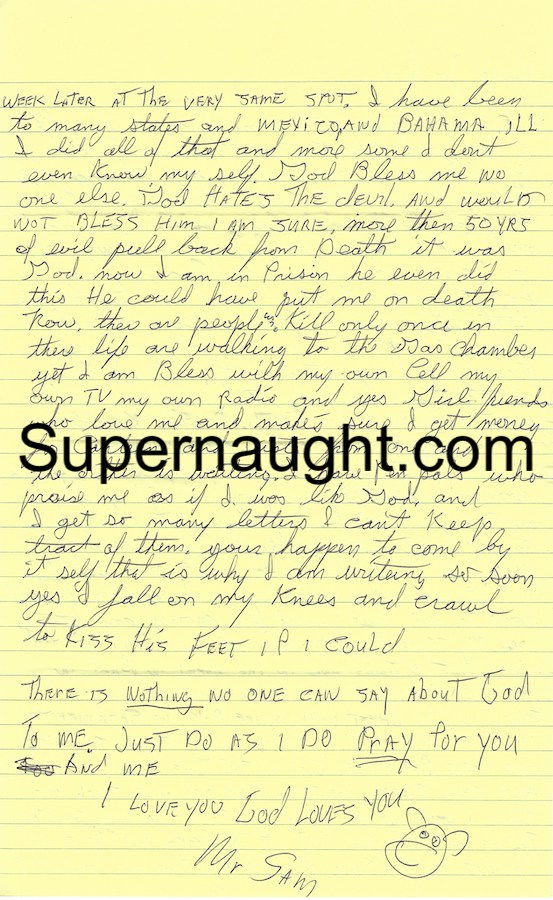 WEEK LATER AT THE VERY SAME SPOT. I have been
to many states and MEXICO, AND BAHAMA, ILL
I did all of that and more some I dont
even Know my self. God Bless me no
one else. God HATES THE devil, AND woulD
NOT BLESS Him I AM SURE, more then 50 YRS
of evil pull back from Death it was
God. now I am in Prison he even did
this He could have put me on death
Row. ther are people Kill only once in
there life are walking to the Gas Chamber
yet I am Bless with my own Cell my
own TV my own Radio and yes Girl friends
who love me and makes sure I get money
Supernaught.com
the other is waiting. I have Pen pals who
praise me as if I was like God, and
I get so many letters I cant Keep
tract of them. your happen to come by
it self that is why I am writing so soon
yes I fall on my Knees and crawl
to KISS His FEET IF I COULD
THERE IS Nothing NO ONE CAN SAY ABout God
To ME. JUST DO AS I DO PRAY for you
And ME
I LOVE YOU God LOVES YOU
Mr SAM